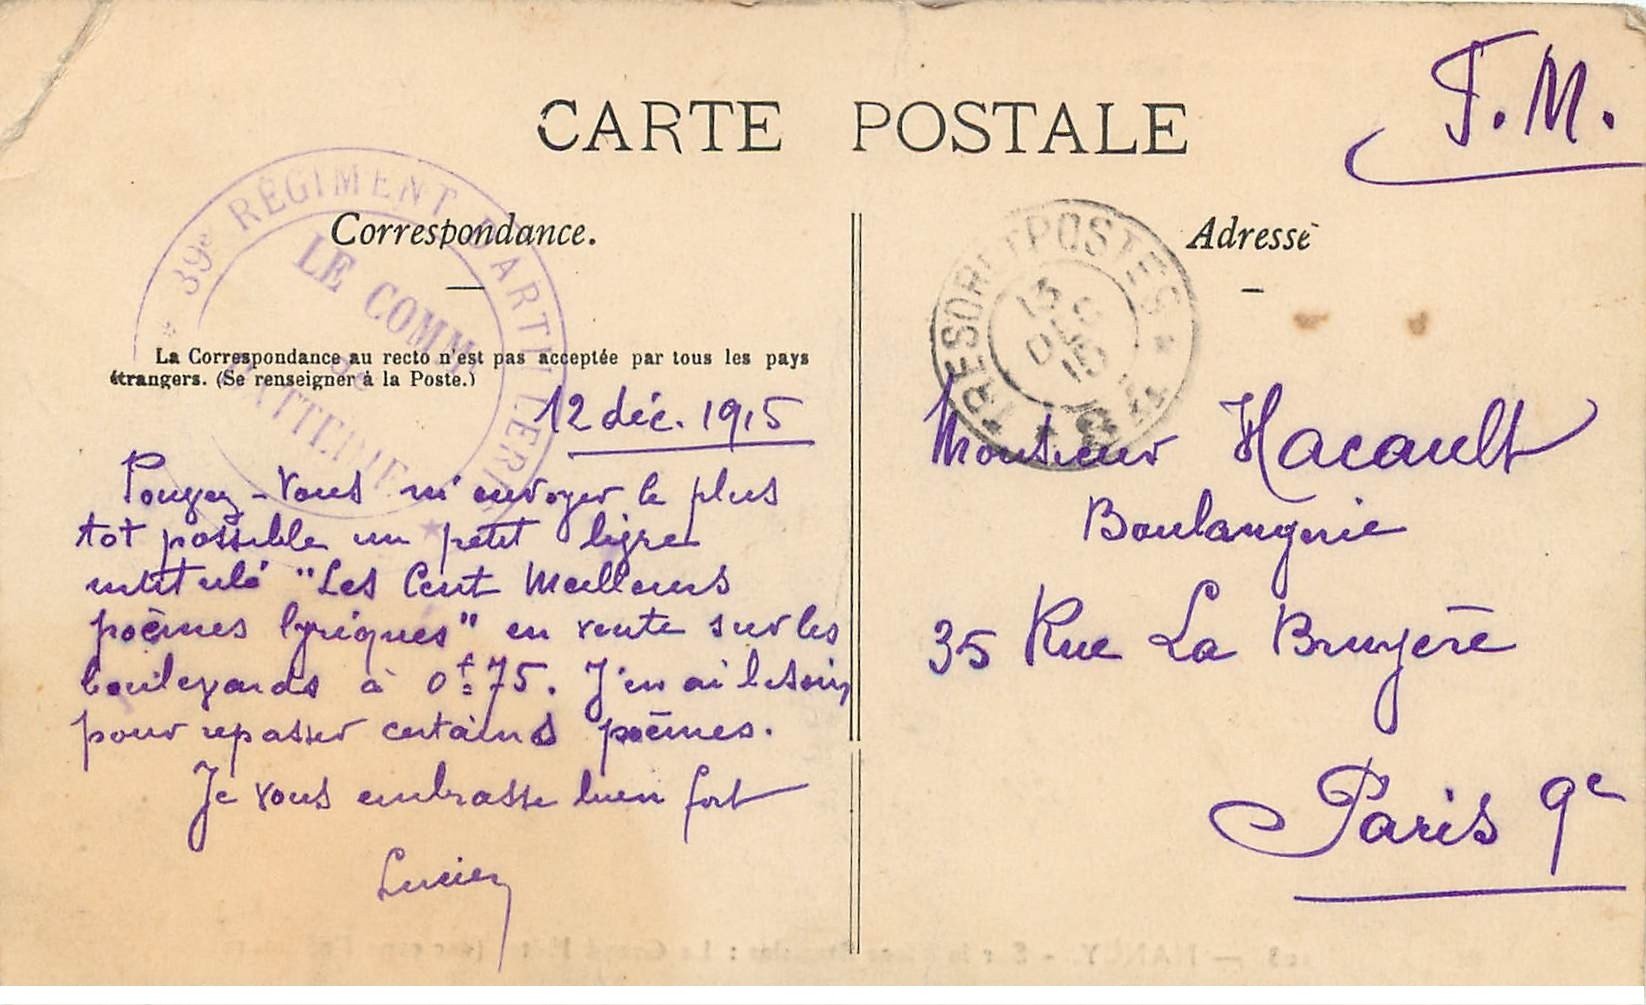 F.M.
CARTE POSTALE
39e RÉGIMENT D'ARTILLERIE
LE COMMt
BATTERIE
Correspondance.
TRESOR ET POSTES
13
DEC
15
Adresse
La Correspondance au recto n'est pas acceptée par tous les pays
étrangers. (Se renseigner à la Poste.)
12 déc. 1915
Pouvez-vous m'envoyer le plus
tot possible un petit livre
intitulé "Les Cent Meilleurs
poèmes lyriques" en vente sur les
boulevards à 0f75. J'en ai besoin
pour repasser certains poèmes.
Je vous embrasse bien fort
Lucien
Monsieur Hacault
Boulangerie
35 Rue La Bruyère
Paris 9e
NANCY. -